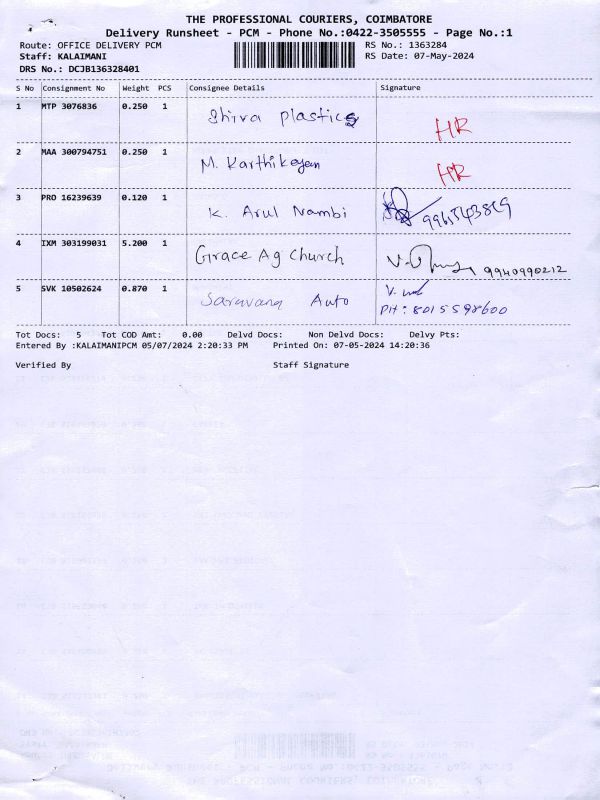 THE PROFESSIONAL COURIERS, COIMBATORE
Delivery Runsheet - PCM - Phone No.:0422-3505555 - Page No.:1
Route: OFFICE DELIVERY PCM RS No.: 1363284
Staff: KALAIMANI RS Date: 07-May-2024
DRS No.: DCJB136328401
S No Consignment No Weight PCS Consignee Details Signature
1 MTP 3076836 0.250 1 Shiva Plastics HR
2 MAA 300794751 0.250 1 M. Karthikeyan HR
3 PRO 16239639 0.120 1 K. Arul Nambi
4 IXM 303199031 5.200 1 Grace Ag Church 9940990212
5 SVK 10502624 0.870 1 Saravana Auto
PH: 8015598600
Tot Docs: 5 Tot COD Amt: 0.00 Delvd Docs: Non Delvd Docs: Delvy Pts:
Entered By :KALAIMANIPCM 05/07/2024 2:20:33 PM Printed On: 07-05-2024 14:20:36
Verified By Staff Signature